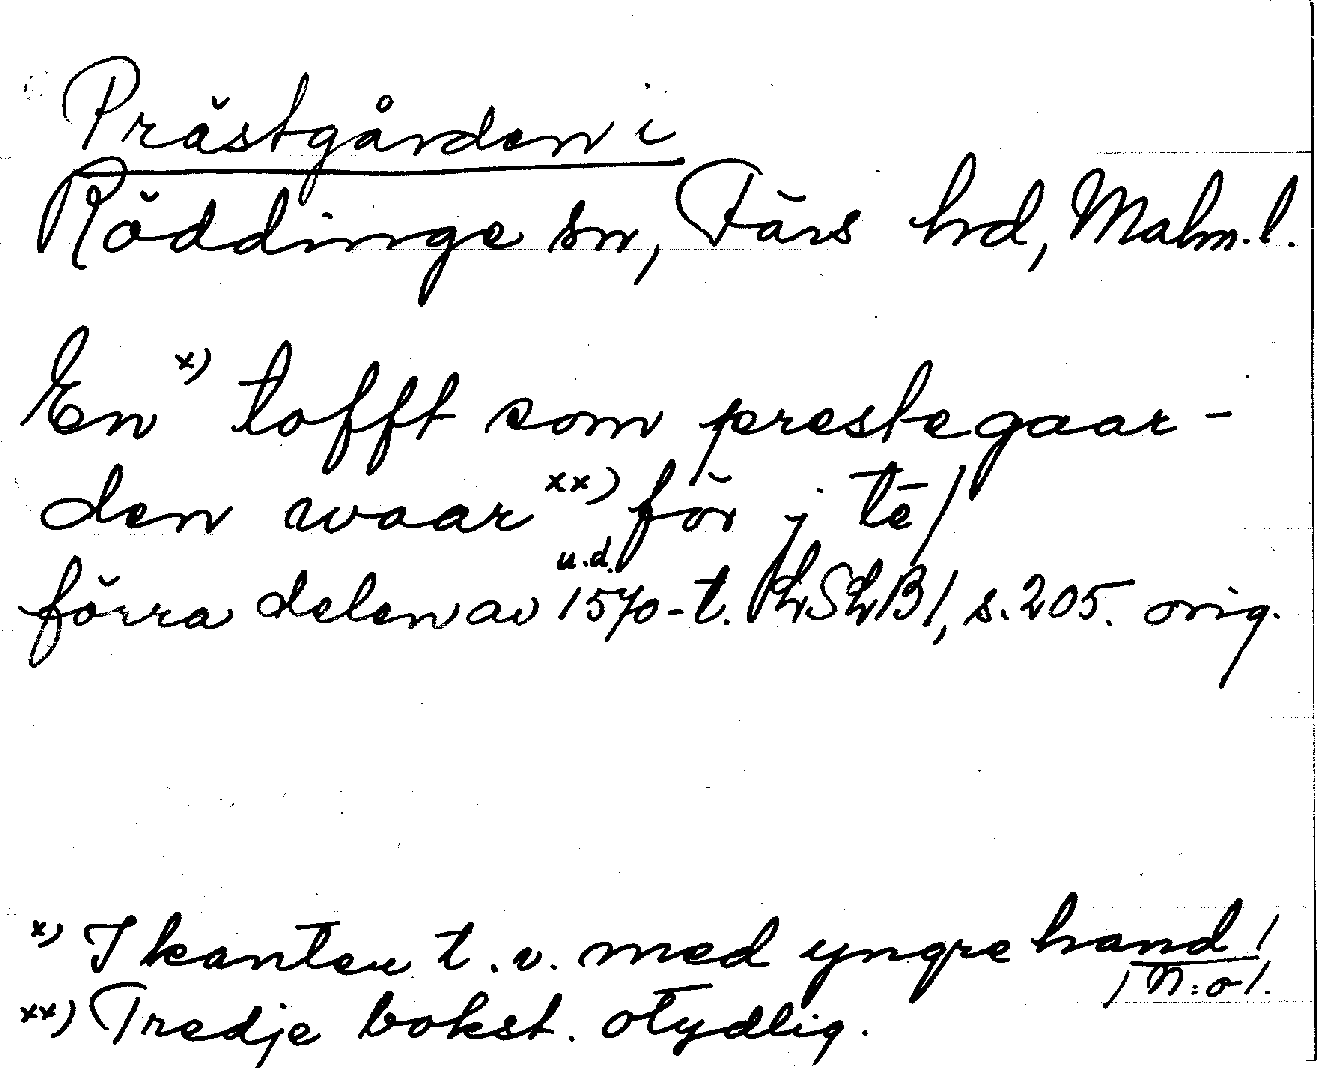 Prästgården i
Röddinge sn, Färs hd, Malm. l.
En x) tofft som prestegaar-
den waar xx) för j te/
u.d.
förra delen av 1570-t. LSLB/, s. 205. orig.
x) I kanten t. v. med yngre hand /
/N:o/.
xx) Tredje bokst. otydlig.